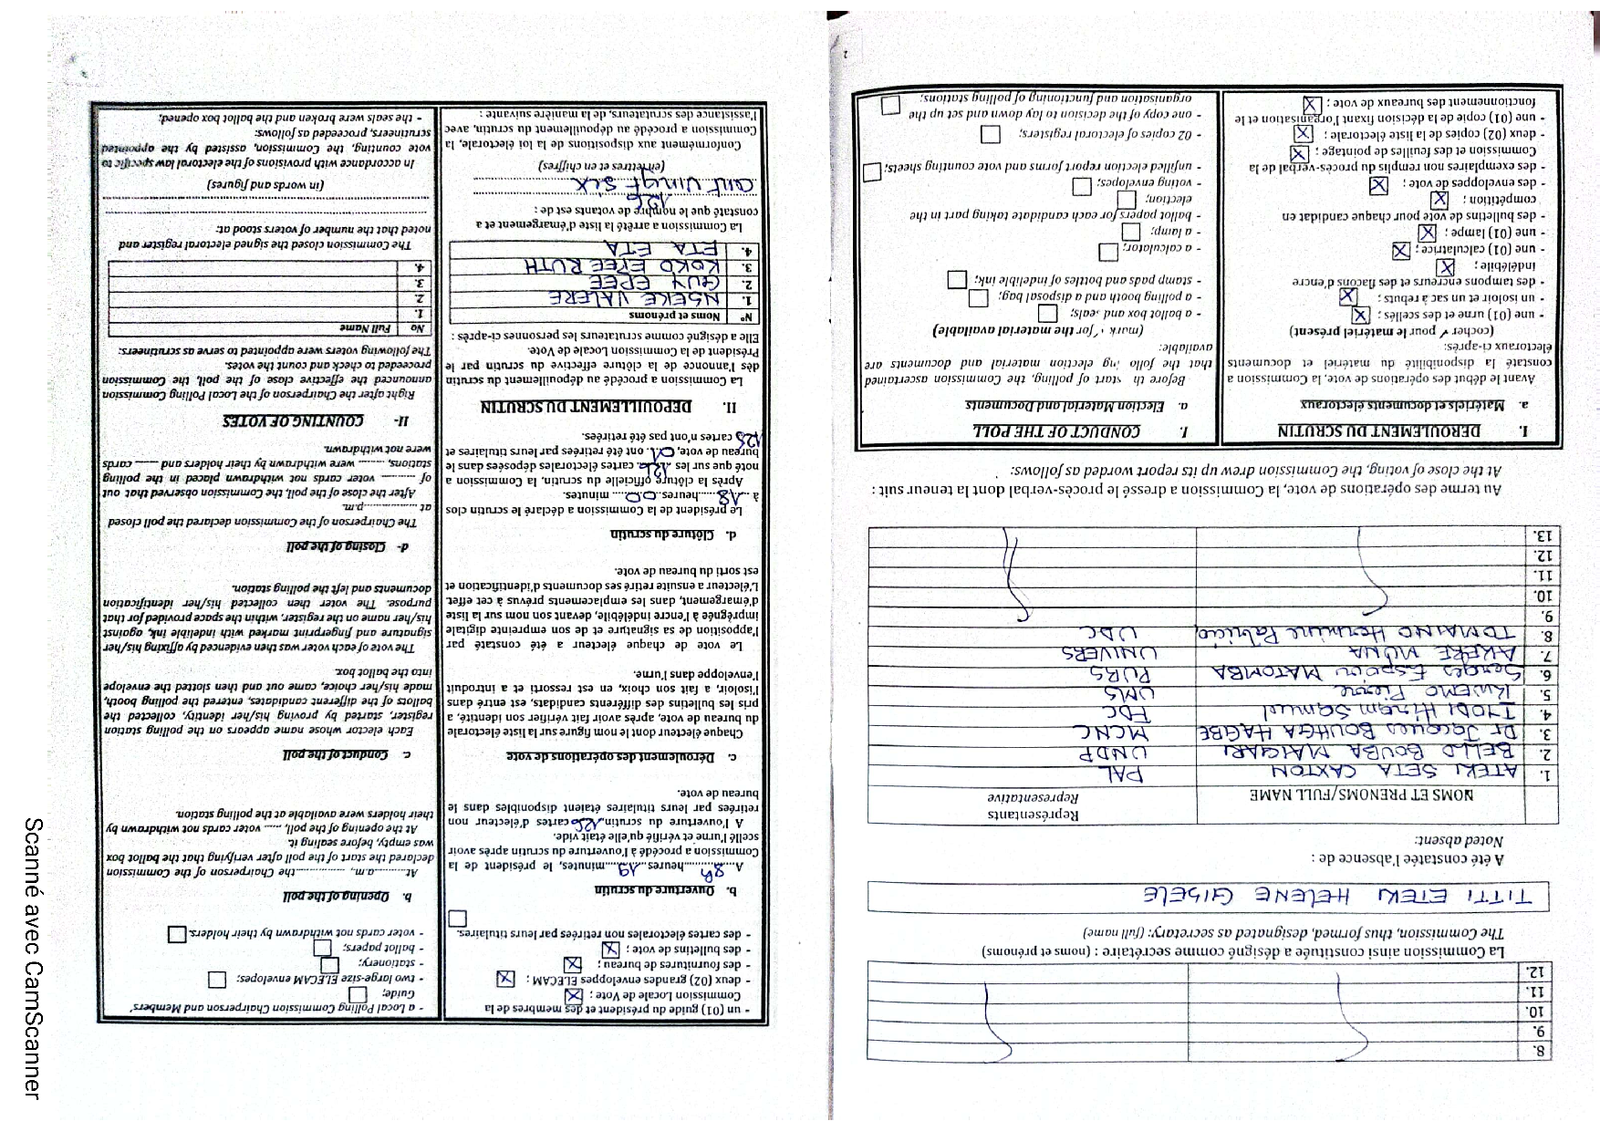 8.
9.
10.
11.
12.
La Commission ainsi constituée a désigné comme secrétaire : (noms et prénoms)
The Commission, thus formed, designated as secretary: (full name)
TITTI ETEKI HELENE GISELE
A été constatée l'absence de :
Noted absent:
NOMS ET PRENOMS/FULL NAME
Représentants
Representative
1. ATEKI SETA CAXTON PAL
2. BELLO BOUBA MAIGARI UNDP
3. Dr Jacques BOUHGA HAGBE MCNC
4. IYODI Hiram Samuel FDC
5. KWEMO Pierre UMS
6. Serges Espoir MATOMBA PURS
7. AKERE MUNA UNIVERS
8. TOMAINO Hermine Patricia UDC
9.
10.
11.
12.
13.
Au terme des opérations de vote, la Commission a dressé le procès-verbal dont la teneur suit :
At the close of voting, the Commission drew up its report worded as follows:
I. DEROULEMENT DU SCRUTIN
a. Matériels et documents électoraux
Avant le début des opérations de vote, la Commission a
constaté la disponibilité du matériel et documents
électoraux ci-après:
(cocher ✓ pour le matériel présent)
- une (01) urne et des scellés ;
- un isoloir et un sac à rebuts ;
- des tampons encreurs et des flacons d'encre
indélébile ;
- une (01) calculatrice ;
- une (01) lampe ;
- des bulletins de vote pour chaque candidat en
compétition ;
- des enveloppes de vote ;
- des exemplaires non remplis du procès-verbal de la
Commission et des feuilles de pointage ;
- deux (02) copies de la liste électorale ;
- une (01) copie de la décision fixant l'organisation et le
fonctionnement des bureaux de vote ;
I. CONDUCT OF THE POLL
a. Election Material and Documents
Before th start of polling, the Commission ascertained
that the follo ing election material and documents are
available:
(mark ✓ for the material available)
- a ballot box and seals;
- a polling booth and a disposal bag;
- stamp pads and bottles of indelible ink;
- a calculator;
- a lamp;
- ballot papers for each candidate taking part in the
election;
- voting envelopes;
- unfilled election report forms and vote counting sheets;
- 02 copies of electoral registers;
- one copy of the decision to lay down and set up the
organisation and functioning of polling stations;
2
- un (01) guide du président et des membres de la
Commission Locale de Vote ;
- deux (02) grandes enveloppes ELECAM ;
- des fournitures de bureau ;
- des bulletins de vote ;
- des cartes électorales non retirées par leurs titulaires.
b. Ouverture du scrutin
A 8h heures 19 minutes, le président de la
Commission a procédé à l'ouverture du scrutin après avoir
scellé l'urne et vérifié qu'elle était vide.
A l'ouverture du scrutin, 126 cartes d'électeur non
retirées par leurs titulaires étaient disponibles dans le
bureau de vote.
c. Déroulement des opérations de vote
Chaque électeur dont le nom figure sur la liste électorale
du bureau de vote, après avoir fait vérifier son identité, a
pris les bulletins des différents candidats, est entré dans
l'isoloir, a fait son choix, en est ressorti et a introduit
l'enveloppe dans l'urne.
Le vote de chaque électeur a été constaté par
l'apposition de sa signature et de son empreinte digitale
imprégnée à l'encre indélébile, devant son nom sur la liste
d'émargement, dans les emplacements prévus à cet effet.
L'électeur a ensuite retiré ses documents d'identification et
est sorti du bureau de vote.
d. Clôture du scrutin
Le président de la Commission a déclaré le scrutin clos
à 18 heures 00 minutes.
Après la clôture officielle du scrutin, la Commission a
noté que sur les 126 cartes électorales déposées dans le
bureau de vote, 01 ont été retirées par leurs titulaires et
125 cartes n'ont pas été retirées.
II. DEPOUILLEMENT DU SCRUTIN
La Commission a procédé au dépouillement du scrutin
dès l'annonce de la clôture effective du scrutin par le
Président de la Commission Locale de Vote.
Elle a désigné comme scrutateurs les personnes ci-après :
N° Noms et prénoms
1. NSEKE VALERE
2. GUY EPEE
3. KOKO EPEE RUTH
4. ETA ETA
La Commission a arrêté la liste d'émargement et a
constaté que le nombre de votants est de :
126
cent vingt six
(en lettres et en chiffres)
Conformément aux dispositions de la loi électorale, la
Commission a procédé au dépouillement du scrutin, avec
l'assistance des scrutateurs, de la manière suivante :
- a Local Polling Commission Chairperson and Members'
Guide;
- two large-size ELECAM envelopes;
- stationery;
- ballot papers;
- voter cards not withdrawn by their holders.
b. Opening of the poll
At..........a.m, ..............the Chairperson of the Commission
declared the start of the poll after verifying that the ballot box
was empty, before sealing it.
At the opening of the poll, ...... voter cards not withdrawn by
their holders were available at the polling station.
c. Conduct of the poll
Each elector whose name appears on the polling station
register, started by proving his/her identity, collected the
ballots of the different candidates, entered the polling booth,
made his/her choice, came out and then slotted the envelope
into the ballot box.
The vote of each voter was then evidenced by affixing his/her
signature and fingerprint marked with indelible ink, against
his/her name on the register, within the space provided for that
purpose. The voter then collected his/her identification
documents and left the polling station.
d- Closing of the poll
The Chairperson of the Commission declared the poll closed
at ..................p.m.
After the close of the poll, the Commission observed that out
of ......... voter cards not withdrawn placed in the polling
stations, ........ were withdrawn by their holders and ...... cards
were not withdrawn.
II- COUNTING OF VOTES
Right after the Chairperson of the Local Polling Commission
announced the effective close of the poll, the Commission
proceeded to check and count the votes.
The following voters were appointed to serve as scrutineers:
No Full Name
1.
2.
3.
4.
The Commission closed the signed electoral register and
noted that the number of voters stood at:
(in words and figures)
In accordance with provisions of the electoral law specific to
vote counting, the Commission, assisted by the appointed
scrutineers, proceeded as follows:
- the seals were broken and the ballot box opened;
Scanné avec CamScanner